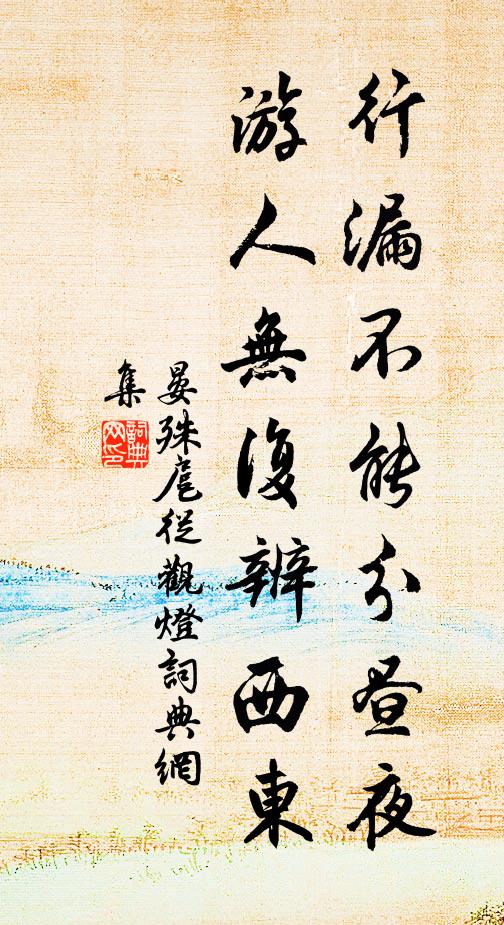 行漏不能分昼夜
游人無復辨西東
晏殊扈從觀燈詞典網
集
詞典
网印